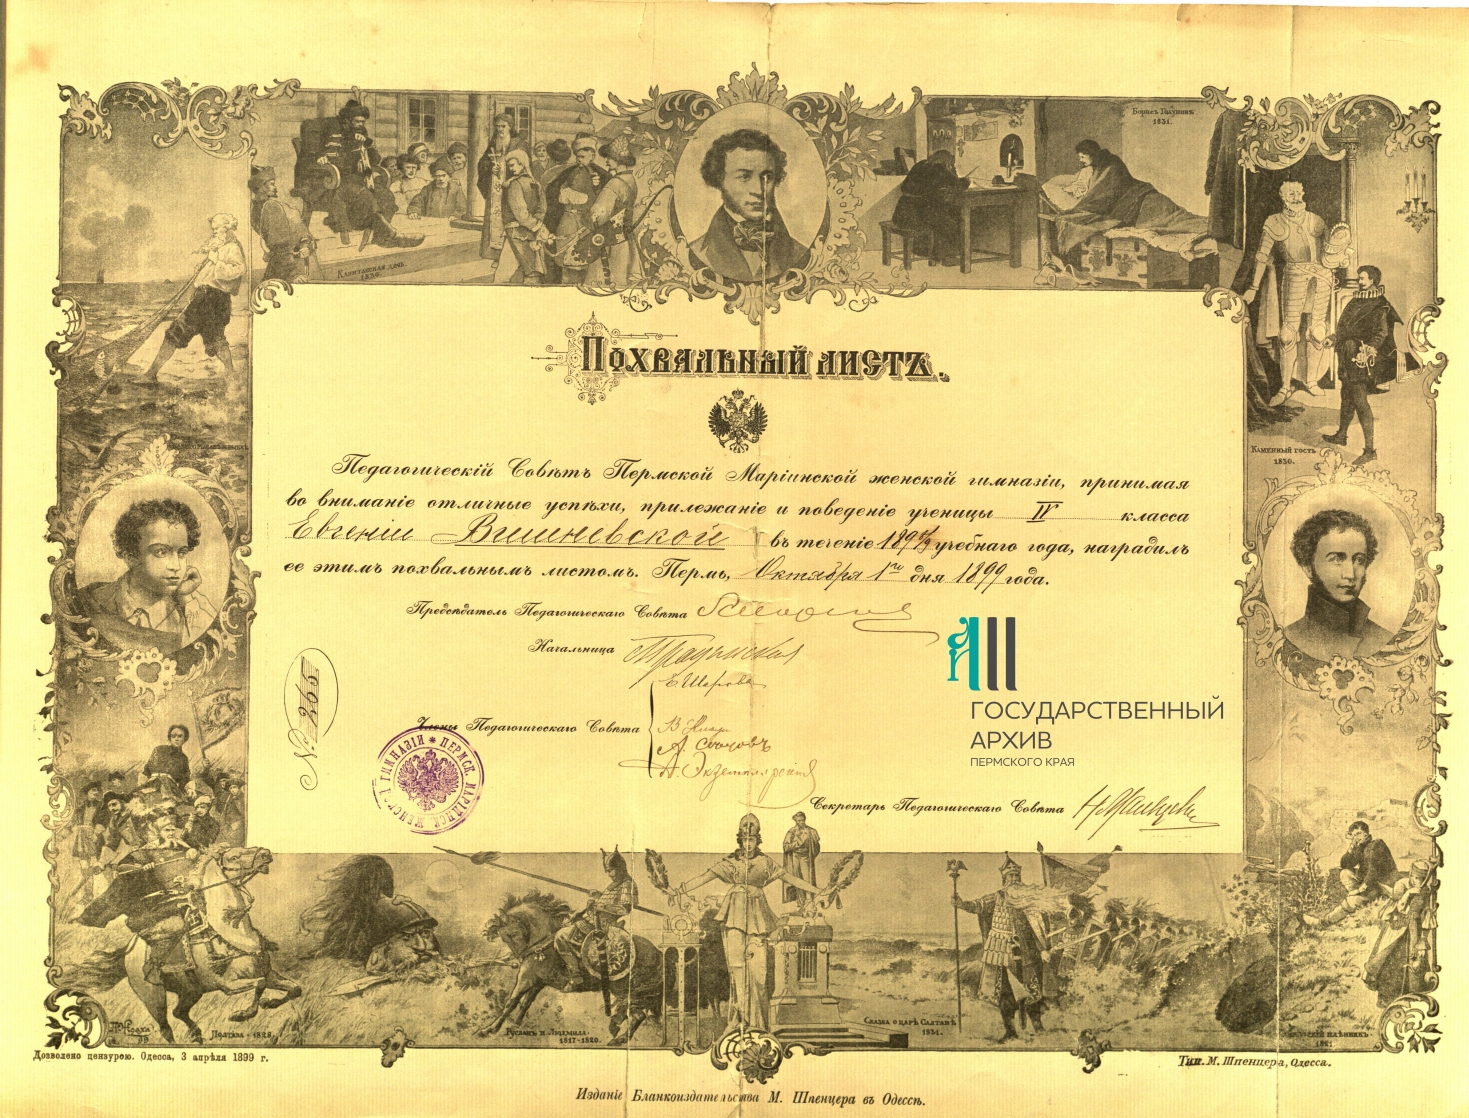 Борисъ Годуновъ
1831.
Капитанская дочь.
1836.
Каменный гость
1830.
Похвальный листъ.
Педагогическій Совѣтъ Пермской Маріинской женской гимназіи, принимая
во вниманіе отличные успѣхи, прилежаніе и поведеніе ученицы IV класса
Евгеніи Вишневской въ теченіе 189 8/9 учебнаго года, наградилъ
ее этимъ похвальнымъ листомъ. Пермь, Октября 1го дня 1899 года.
Предсѣдатель Педагогическаго Совѣта
Начальница
Е Шарова
Члены Педагогическаго Совѣта
№ 265
ПЕРМСК. МАРІИНСК. ЖЕНСК. ГИМНАЗІИ
Секретарь Педагогическаго Совѣта
ГОСУДАРСТВЕННЫЙ
АРХИВ
ПЕРМСКОГО КРАЯ
Полтава - 1828.
Русланъ и Людмила
1817-1820.
Сказка о царѣ Салтанѣ
1831.
плѣнникъ
1821
Дозволено цензурою. Одесса, 3 апрѣля 1899 г.
Тип. М. Шпенцера, Одесса.
Изданіе Бланкоиздательства М. Шпенцера въ Одессѣ.